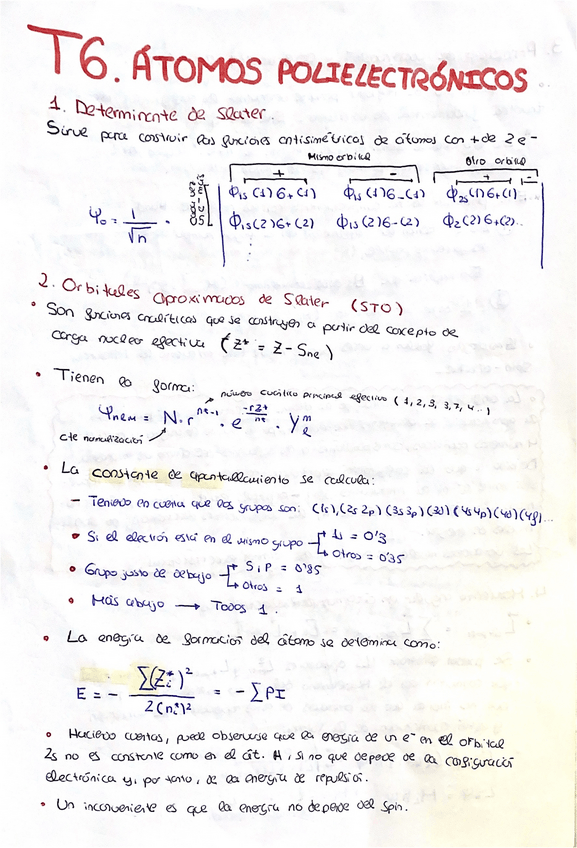 T6. ÁTOMOS POLIELECTRÓNICOS
1. Determinante de Slater.
Sirve para construir las funciones antisimétricas de átomos con + de 2 e-
Mismo orbital Otro orbital
+ - + -
φ1s (1) б+ (1) φ1s (1) б- (1) φ2s (1) б+ (1)
Ψ0 = 1/√n · φ1s (2) б+ (2) φ1s (2) б- (2) φ2 (2) б+ (2)...
2. Orbitales aproximados de Slater (STO)
• Son funciones analíticas que se construyen a partir del concepto de
carga nuclear efectiva (Z* = Z - Sne)
• Tienen la forma:
número cuántico principal efectivo (1, 2, 3, 3,7, 4...)
Ψnem = N · r^(ne-1) · e^(-rZ*/ne) · Y_e^m
cte normalización
• La constante de apantallamiento se calcula:
- Teniendo en cuenta que los grupos son: (1s), (2s 2p) (3s 3p) (3d) (4s 4p) (4d) (4f)...
• Si el electrón está en el mismo grupo 1s = 0'3
Otros = 0'35
• Grupo justo de debajo S, P = 0'85
Otros = 1
• Más abajo → Todos 1.
• La energía de formación del átomo se determina como:
E = - ∑(Zi*)² / 2(ni*)² = - ∑PI
• Haciendo cuentas, puede observarse que la energía de un e- en el orbital
2s no es constante como en el át. H, si no que depende de la configuración
electrónica y, por tanto, de la energía de repulsión.
• Un inconveniente es que la energía no depende del spin.